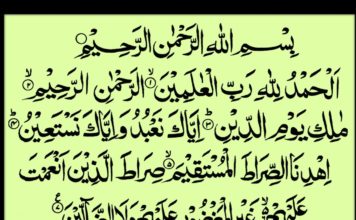 بِسْمِ اللهِ الرَّحْمٰنِ الرَّحِيْمِ
اَلْحَمْدُ لِلّٰهِ رَبِّ الْعٰلَمِيْنَ ۙ﴿۱﴾ الرَّحْمٰنِ الرَّحِيْمِ ۙ﴿۲﴾
مٰلِكِ يَوْمِ الدِّيْنِ ؕ﴿۳﴾ اِيَّاكَ نَعْبُدُ وَ اِيَّاكَ نَسْتَعِيْنُ ؕ﴿۴﴾
اِهْدِنَا الصِّرَاطَ الْمُسْتَقِيْمَ ۙ﴿۵﴾ صِرَاطَ الَّذِيْنَ اَنْعَمْتَ
عَلَيْهِمْ غَيْرِ الْمَغْضُوْبِ عَلَيْهِمْ وَلَا الضَّآلِّيْنَ